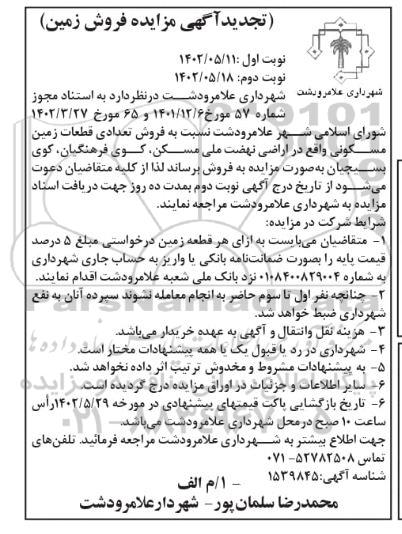 (تجدیدآگهی مزایده فروش زمین)
شهرداری علامرودشت
نوبت اول :۱۴۰۲/۰۵/۱۱
نوبت دوم: ۱۴۰۲/۰۵/۱۸
شهرداری علامرودشـــت درنظردارد به استناد مجوز
شماره ۵۷ مورخ۱۴۰۱/۱۲/۶ و ۶۵ مورخ ۱۴۰۲/۳/۲۷
شورای اسلامی شـــهر علامرودشت نسبت به فروش تعدادی قطعات زمین
مسـکونی واقع در اراضی نهضت ملی مسـکن، کـوی فرهنگیان، کوی
بسـیجیان به‌صورت مزایده به فروش برساند لذا از کلیه متقاضیان دعوت
می‌شـود از تاریخ درج آگهی نوبت دوم بمدت ده روز جهت دریافت اسناد
مزایده به شهرداری علامرودشت مراجعه نمایند.
شرایط شرکت در مزایده:
۱- متقاضیان می‌بایست به ازای هر قطعه زمین درخواستی مبلغ ۵ درصد
قیمت پایه را بصورت ضمانت‌نامه بانکی یا واریز به حساب جاری شهرداری
به شماره ۰۱۰۸۴۰۰۸۲۹۰۰۴ نزد بانک ملی شعبه علامرودشت اقدام نمایند.
۲- چنانچه نفر اول تا سوم حاضر به انجام معامله نشوند سپرده آنان به نفع
شهرداری ضبط خواهد شد.
۳- هزینه نقل وانتقال و آگهی به عهده خریدار می‌باشد.
۴- شهرداری در رد یا قبول یک یا همه پیشنهادات مختار است.
۵- به پیشنهادات مشروط و مخدوش ترتیب اثر داده نخواهد شد.
۶- سایر اطلاعات و جزئیات در اوراق مزایده درج گردیده است.
۶- تاریخ بازگشایی پاکت قیمتهای پیشنهادی در مورخه ۱۴۰۲/۵/۲۹رأس
ساعت ۱۰ صبح درمحل شهرداری علامرودشت می‌باشد.
جهت اطلاع بیشتر به شـــهرداری علامرودشت مراجعه فرمائید. تلفن‌های
تماس ۵۲۷۸۲۵۰۸- ۰۷۱
شناسه آگهی:۱۵۳۹۸۴۵
۱/م الف -
محمدرضا سلمان‌پور- شهردارعلامرودشت